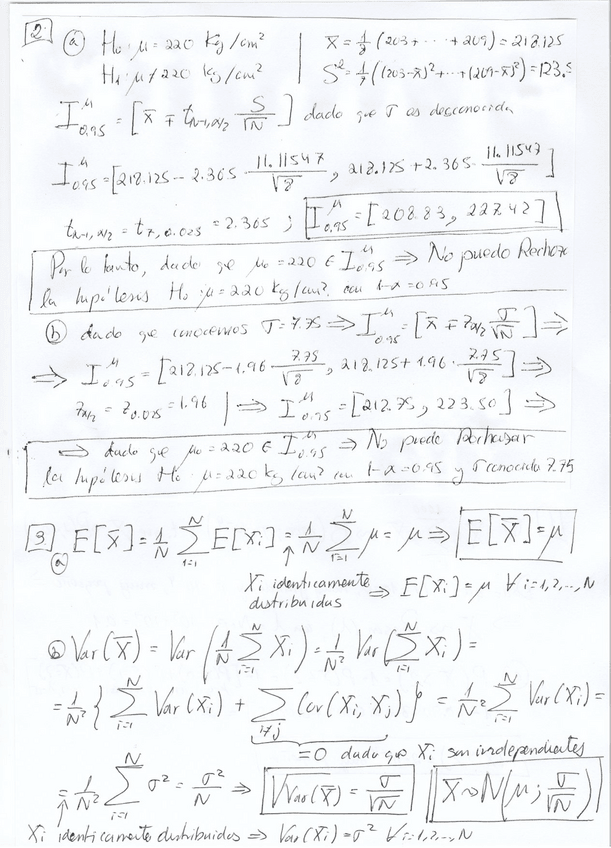 2. a) H₀: μ = 220 Kg/cm² | X̄ = 1/8 (203 + ... + 209) = 218.125
H₁: μ ≠ 220 kg/cm² | S² = 1/7 ((203-X̄)² + ... + (209-X̄)²) = 123.5
I^μ_0.95 = [X̄ ∓ t_{N-1,α/2} S/√N] dado que σ es desconocida
I^μ_0.95 = [218.125 - 2.365 · 11.11547/√8 , 218.125 + 2.365 · 11.11547/√8]
t_{N-1,α/2} = t_{7,0.025} = 2.365 ; I^μ_0.95 = [208.83, 227.42]
Por lo tanto, dado que μ₀ = 220 ∈ I^μ_0.95 ⇒ No puedo Rechazar
la hipótesis H₀: μ = 220 kg/cm² con 1-α = 0.95
b) dado que conocemos σ = 7.75 ⇒ I^μ_0.95 = [X̄ ∓ z_{α/2} σ/√N] ⇒
⇒ I^μ_0.95 = [218.125 - 1.96 · 7.75/√8 , 218.125 + 1.96 · 7.75/√8] ⇒
z_{α/2} = z_{0.025} = 1.96 | ⇒ I^μ_0.95 = [212.75, 223.50] ⇒
⇒ dado que μ₀ = 220 ∈ I^μ_0.95 ⇒ No puedo Rechazar
la hipótesis H₀: μ = 220 kg/cm² con 1-α = 0.95 y σ conocido 7.75
3. a) E[X̄] = 1/N ∑_{i=1}^N E[Xi] = 1/N ∑_{i=1}^N μ = μ ⇒ E[X̄] = μ
Xi identicamente ⇒ E[Xi] = μ ∀ i=1,2,...,N
distribuidas
b) Var(X̄) = Var(1/N ∑_{i=1}^N Xi) = 1/N² Var(∑_{i=1}^N Xi) =
= 1/N² {∑_{i=1}^N Var(Xi) + ∑_{i≠j} Cov(Xi, Xj)} = 1/N² ∑_{i=1}^N Var(Xi) =
= 0 dado que Xi son independientes
= 1/N² ∑_{i=1}^N σ² = σ²/N ⇒ √Var(X̄) = σ/√N X̄ ~ N(μ; σ/√N)
Xi identicamente distribuidas ⇒ Var(Xi) = σ² ∀ i=1,2,...,N